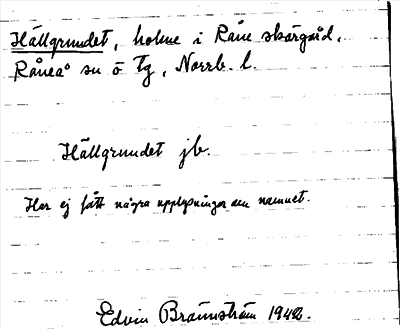 Hällgrundet, holme i Råne skärgård,
Råneå sn ö Tg, Norrb. l.
Hällgrundet jb.
Har ej fått några upplysningar om namnet.
Edvin Brännström 1942.